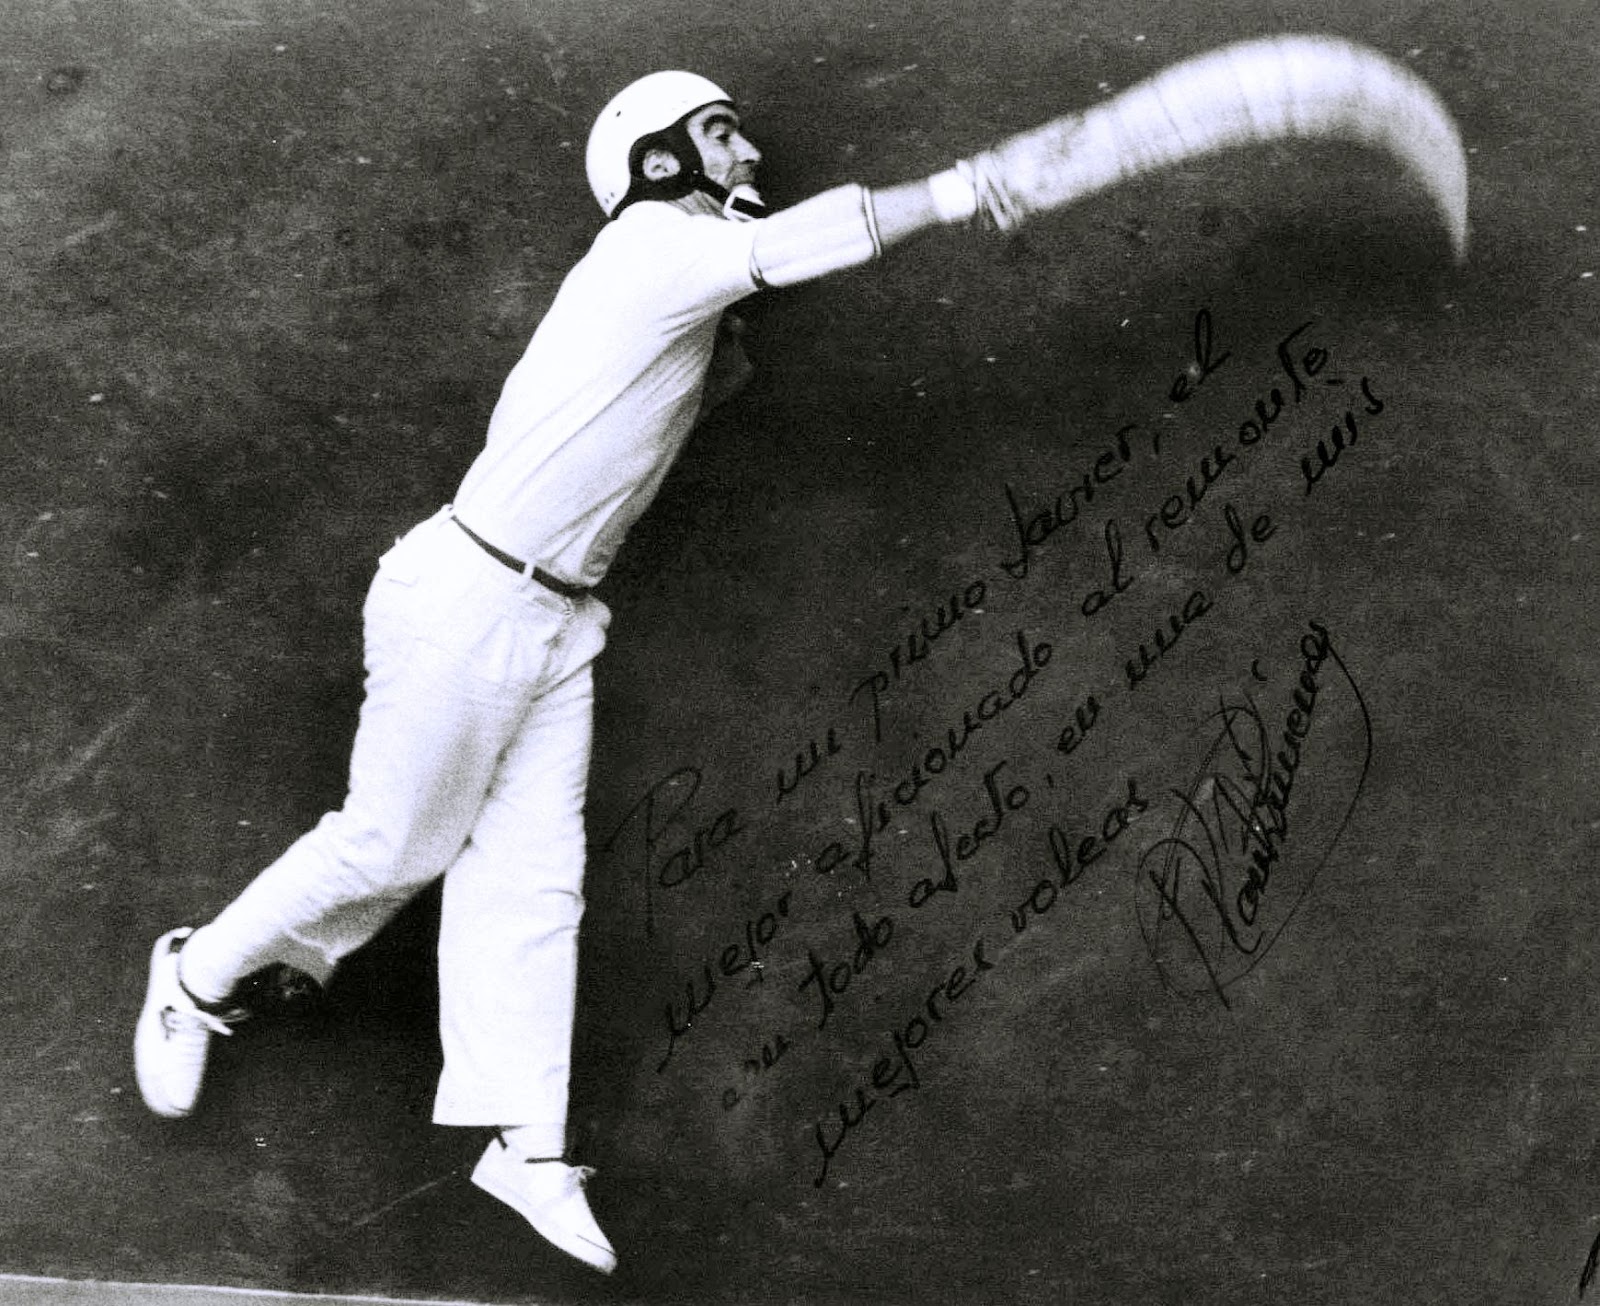 Para mi primo Javier, el
mejor aficionado al remonte
con todo afecto, en una de mis
mejores voleas